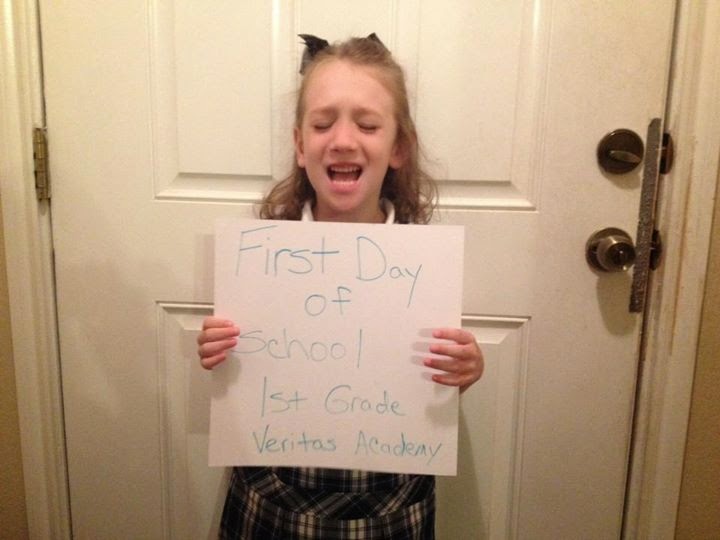 First Day
of
School
1st Grade
Veritas Academy